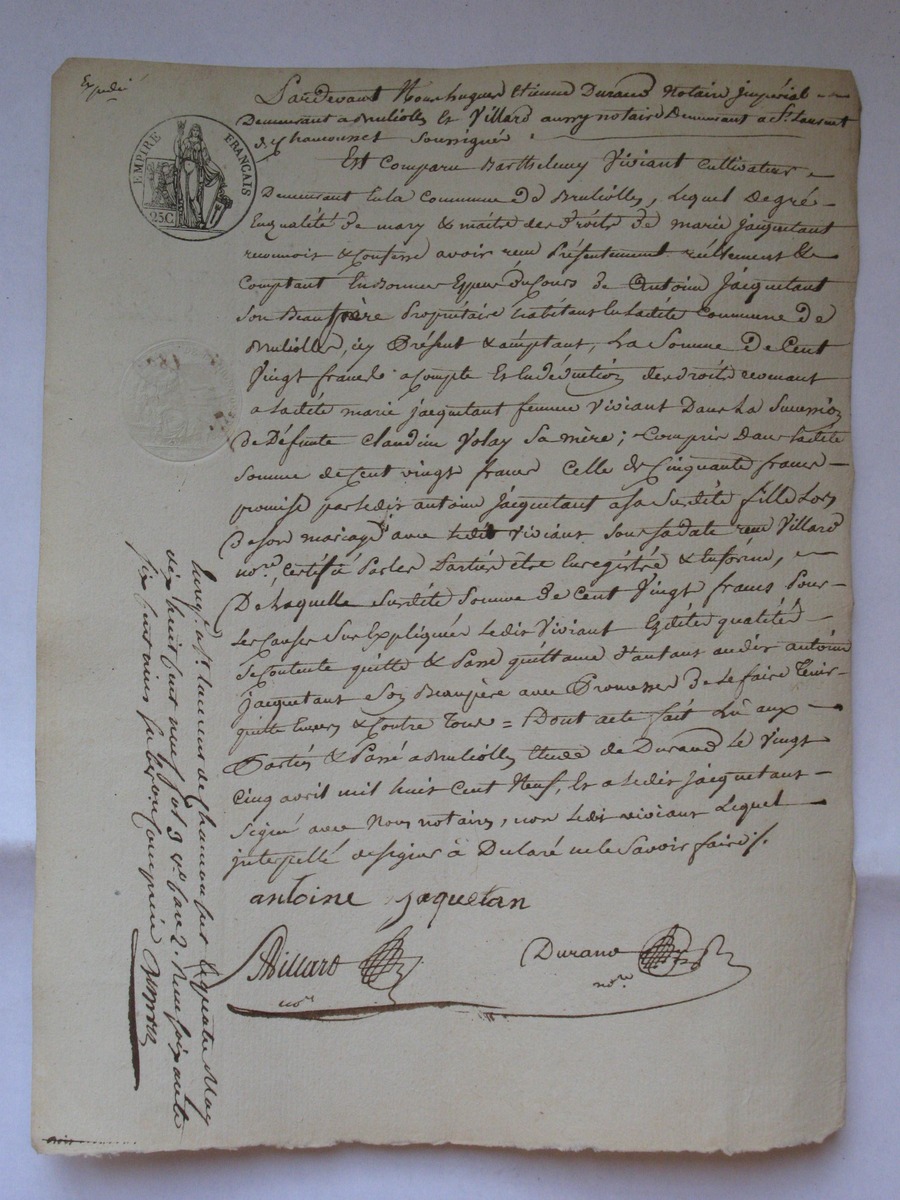 Expedié
Pardevant Nous hugues Etienne Durand Notaire Imperial
Demeurant a Brullioles Et Villard aussy notaire Demeurant a St. Laurent
de Chamousset Soussignés
EMPIRE FRANÇAIS
25C
Est Comparu Barthelemy Viviant Cultivateur
Demeurant En la Commune De Brullioles, Lequel De gré
En qualité de mary & maitre des Droits de marie jacquetant
reconnois & Confesse avoir reçu Présentement réellement &
Comptant En Bonnes Espesses Du Cours De Antoine Jacquetant
Son Beaupère Propriétaire habitant En Ladite Commune De
Brullioles, icy Présent & aceptant, La Somme De Cent
Vingt francs a Compte Et En Déduction des droits revenant
a Ladite marie jacquetant femme Viviant Dans La Succession
De Défunte Claudine Volay Sa mère; Compris Dans Ladite
Somme de Cent vingt francs Celle de Cinquante francs
promise par Ledit antoine Jacquetant a sa Susdite fille Lors
De son mariage avec Ledit Viviant Sous Sa Date reçu Villard
nore. Certifié Par Les Parties être Enregistré & En forme,
De Laquelle Susdite Somme De Cent Vingt francs Pour
Les Causes Sus Expliquées Ledit Viviant Esdites qualités
Se Contente quitte & Passe quittance d'autant audit antoine
jacquetant Son Beaupère avec Promesse De Le faire Tenir
quitte Envers & Contre Tous = Dont acte fait Lu aux
Parties & Passé a Brullioles Etude de Durand Le Vingt
Cinq avril mil huit Cent Neuf, Et a Ledit Jacquetant
Signé avec Nous notaires, non Ledit viviant Lequel
interpellé de signer à Déclaré ne le Savoir faire /.
antoine jaquetan
Villard
nore
Durand
nore
Enregé. a St. Laurent de Chamousset Le quatre May
dix huit cent neuf fol 3 Ro Case 2. Reçu soixante
six centimes subvention comprise